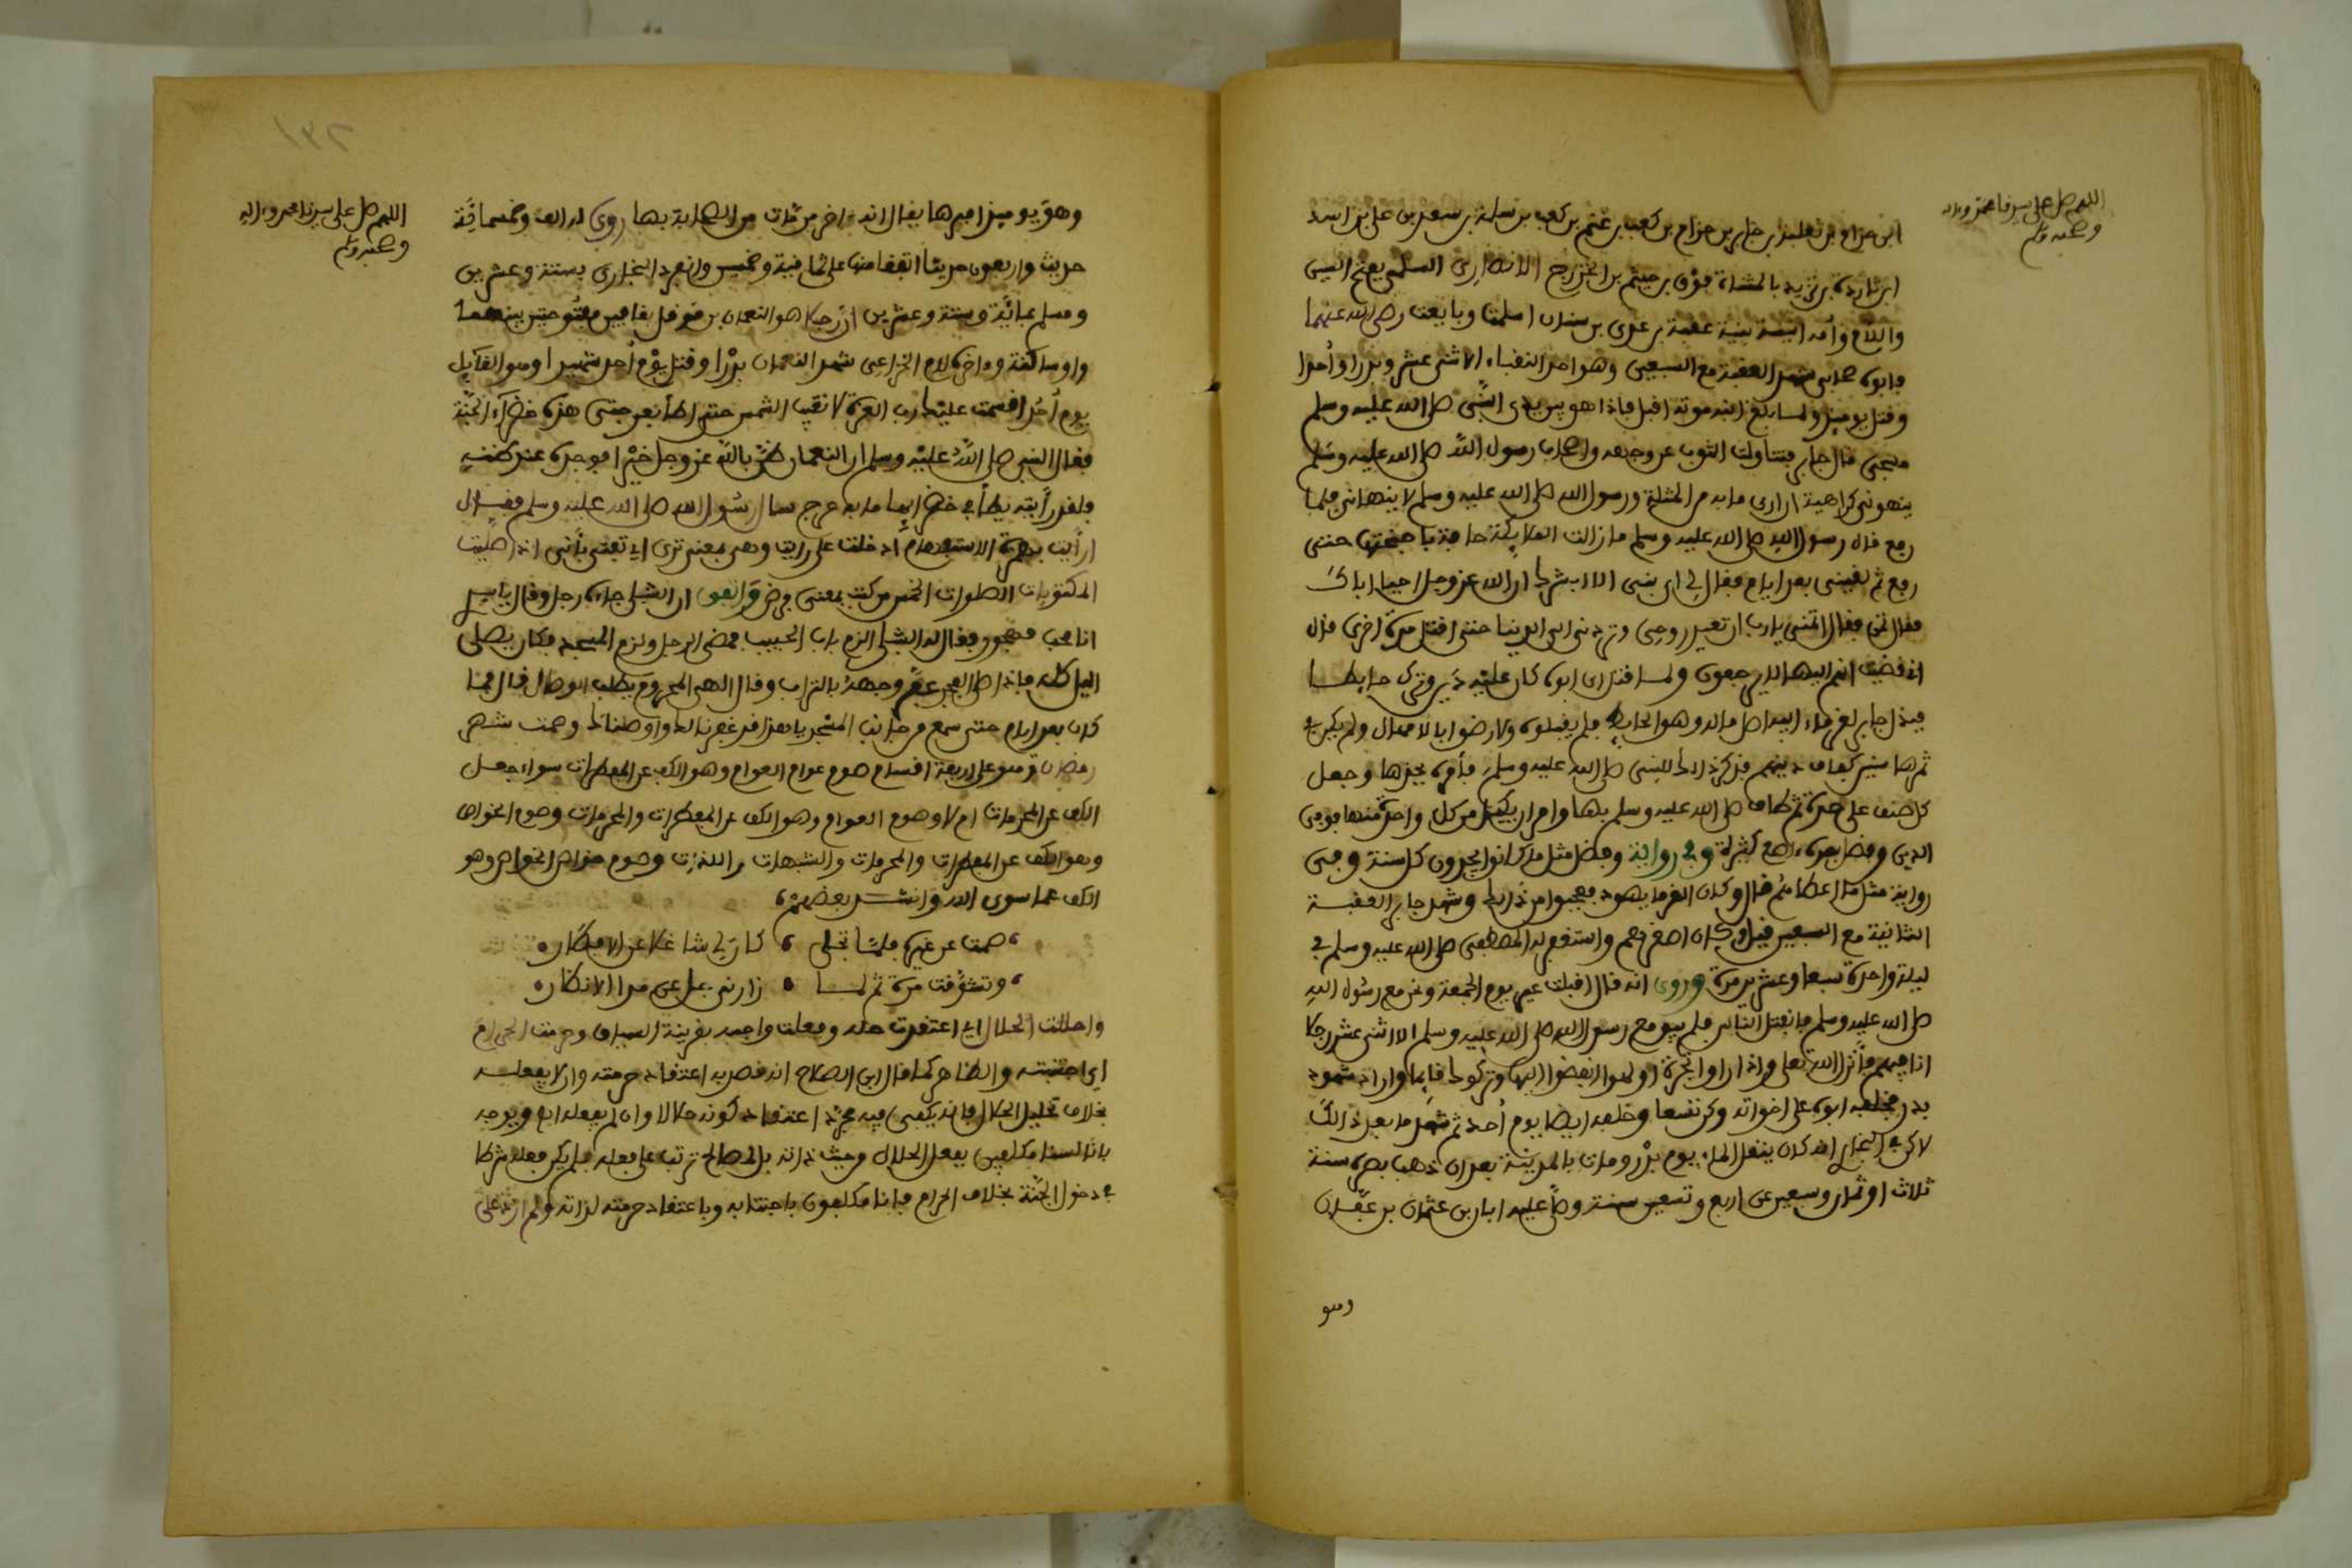 اللهم صل على سيدنا محمد وءاله
وصحبه وسلم
ابن حزام بن ثعلبة بن حرام بن كعب بن غنم بن كعب بن سلمة بن سعد بن علي بن اسد
ابن ساردة بن تزيد بالمثناة فوق بن جشم بن الخزرج الانصاري السلمي بفتح السين
واللام وأمه انيسة بنت عقبة بن عدي بن سنان اسلمت وبايعت رضي الله عنهما
وابوه صحابي شهد العقبة مع السبعين وهو احد النقباء الاثني عشر وبدرا وأحدا
وقتل يوميذ ولما بلغ ابنه موته اقبل فاذا هو بين يدي النبي صلى الله عليه وسلم
مسجى قال جابر فتناولت الثوب عن وجهه واصحاب رسول الله صلى الله عليه وسلم
ينهونني كراهية ان ارى ما به من المثلة ورسول الله صلى الله عليه وسلم لا ينهاني فلما
رفع قال رسول الله صلى الله عليه وسلم ما زالت الملايكة حافة باجنحتها حتى
رفع ثم لقيني بعد ايام فقال لي اي بني الا ابشرك ان الله عز وجل احيا اباك
فقال تمن فقال اتمنى يا رب ان تعيد روحي وتردني الى الدنيا حتى اقتل مرة اخرى قال
اني قضيت انهم اليها لا يرجعون ولما قتل ابوه كان عليه دين وترك حايطا
فبذل جابر لغرماء ابيه اصل ماله وهو الحايط فلم يقبلوه ولا رضوا بالامهال ولم يكن في
ثمرها سنين كفاف دينهم فذكر ذالك للنبي صلى الله عليه وسلم فأمره بجذها وجعل
كل صنف على حدة ثم طاف صلى الله عليه وسلم بها وامر ان يكيل من كل واحدة منها فوفى
الدين وفضل بعده اصع كثيرة وفي رواية وفضل مثل ما كانوا يجدون كل سنة وفي
رواية مثل ما اعطاهم قال وكان الغرما يهود فعجبوا من ذالك وشهد جابر العقبة
الثانية مع السبعين قيل وكان اصغرهم واستغفر له المصطفى صلى الله عليه وسلم في
ليلة واحدة سبعا وعشرين مرة وروى انه قال اقبلت عير يوم الجمعة ونحن مع رسول الله
صلى الله عليه وسلم فانفتل الناس فلم يبق مع رسول الله صلى الله عليه وسلم الا اثنى عشر رجلا
انا فيهم فأنزل الله تعلى واذا راوا تجرة او لهوا انفضوا اليها وتركوك قايما واراد شهود
بدر فخلفه ابوه على اخواته وكن تسعا وخلفه ايضا يوم أحد ثم شهد ما بعد ذالك
لاكن في البخاري انه كان ينقل الماء يوم بدر ومات بالمدينة بعد ان ذهب بصره سنة
ثلاث او ثمان وسبعين عن اربع وتسعين سنة وصلى عليه ابان بن عثمان بن عفان
وهو
اللهم صل على سيدنا محمد وءاله
وصحبه وسلم
وهو يوميذ اميرها يقال انه ءاخر من مات من الصحابة بها روي له الف وخمسمائة
حديث واربعون حديثا اتفقا منها على ثمانية وخمسين وانفرد البخاري بستة وعشرين
ومسلم بمائة وستة وعشرين ان رجلا هو النعمان بن قوقل بقافين مفتوحتين بينهما
واو ساكنة وءاخره لام الخزاعي شهد النعمان بدرا وقتل يوم أحد شهيدا وهو القايل
يوم أحد اقسمت عليك يا رب العزة لا تغيب الشمس حتى اطأ بعرجتي هذه خضراء الجنة
فقال النبي صلى الله عليه وسلم ان النعمان ظن بالله عز وجل خيرا فوجده عند ظنه
ولقد رأيته يطأ في خضرائها ما به عرج سال رسول الله صلى الله عليه وسلم فقال
ارأيت بهمزة الاستفهام ادخلت على رايت وهي بمعنى ترى اي تفتي بأني اذا صليت
المكتوبات الصلوات الخمس من كتب بمعنى فرض واتفق ان الشبلي جاءه رجل وقال يا سيدي
انا محب مهجور فقال له الشبلي الزم باب الحبيب فمضى الرجل ولزم المسجد فكان يصلي
اليل كله فاذا طلع الفجر عفر وجهه بالتراب وقال الهي المحروم يطلب الوصال قال فما
كان بعد ايام حتى سمع من جانب المسجد يا هذا قد غفرنا لك واوصلناك وصمت شهر
رمضان وهو على اربعة اقسام صوم عوام العوام وهو الكف عن المفطرات سواء جعل
الكف عن المحرمات ام لا وصوم العوام وهو الكف عن المفطرات والمحرمات وصوم الخواص
وهو الكف عن المفطرات والمحرمات والشبهات واللذات وصوم خواص الخواص وهو
الكف عما سوى الله وانشد بعضهم
صمت عن غيره فلما تجلى كان لي شاغلا عن الافطار
وتشوقت مرة ثم لما زارني جل عن مدا الانظار
واحللت الحلال اي اعتقدت حله وفعلت واجبه بقرينة السياق وحرمت الحرام
اي اجتنبته والظاهر كما قال ابن الصلاح انه قصد به اعتقاد حرمته وان لا يفعله
بخلاف تحليل الحلال فانه يكفي فيه مجرد اعتقاد كونه حلالا وان لم يفعله اي ويوجه
بانا لسنا مكلفين بفعل الحلال من حيث ذاته بل لمصالح تترتب على فعله فلم يكن فعله شرطا
في دخول الجنة بخلاف الحرام فإنا مكلفون باجتنابه وباعتقاد حرمته لذاته ولم ازد على